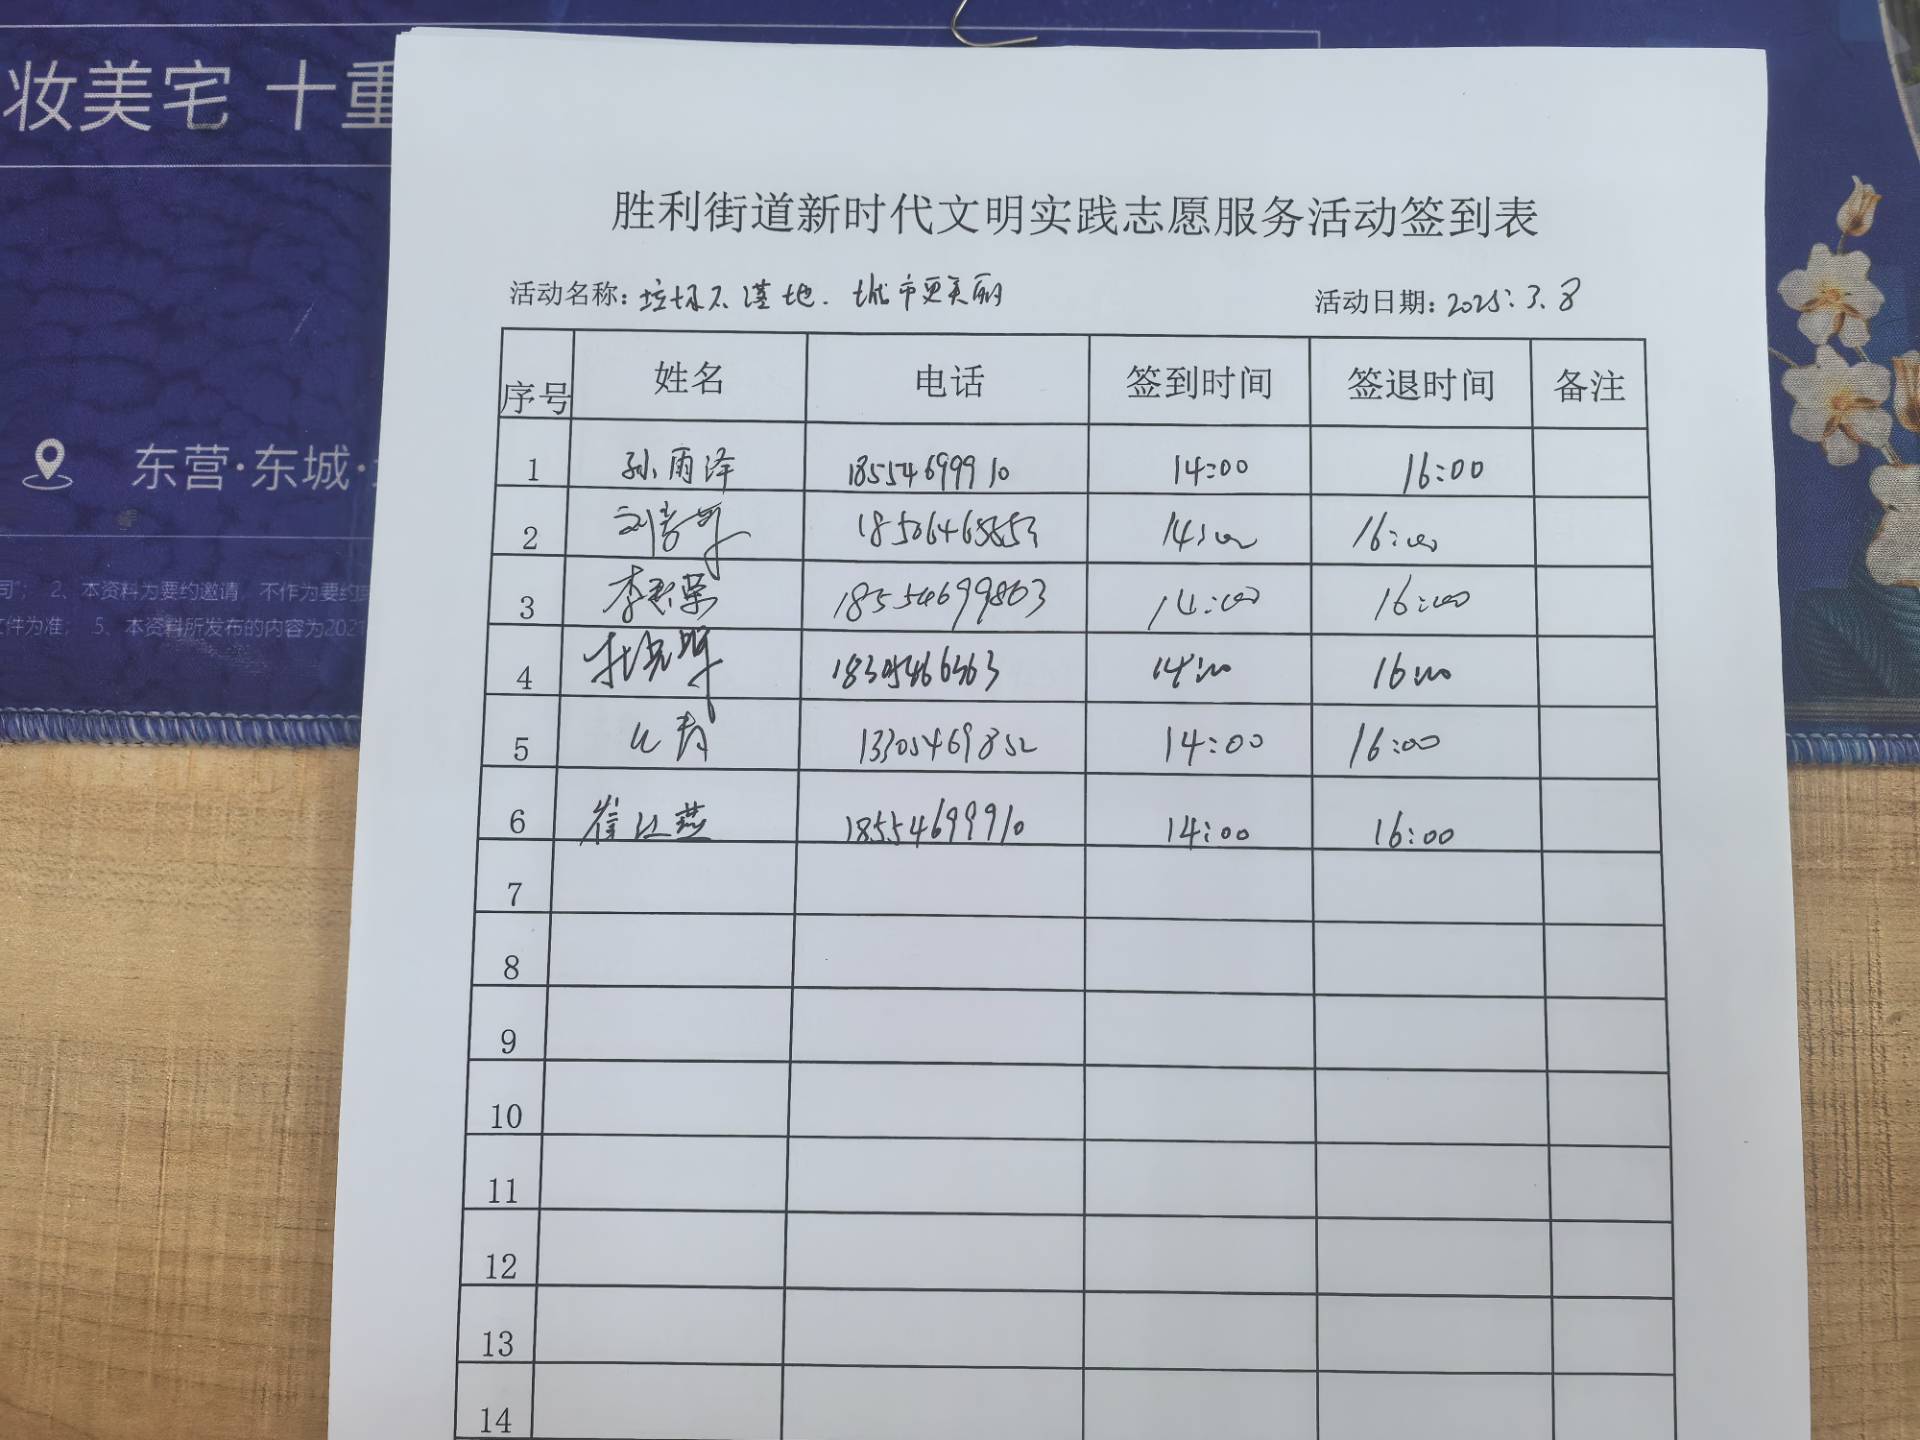 妆美宅 十重
东营·东城·
司"; 2、本资料为要约邀请,不作为要约
文件为准; 5、本资料所发布的内容为2021
胜利街道新时代文明实践志愿服务活动签到表
活动名称:垃圾不落地.城市更美丽 活动日期:2025.3.8
序号 姓名 电话 签到时间 签退时间 备注
1 孙雨泽 18554699910 14:00 16:00
2 14:00 16:00
3 18554699803 14:00 16:00
4 14:00 16:00
5 13305469852 14:00 16:00
6 18554699910 14:00 16:00
7
8
9
10
11
12
13
14